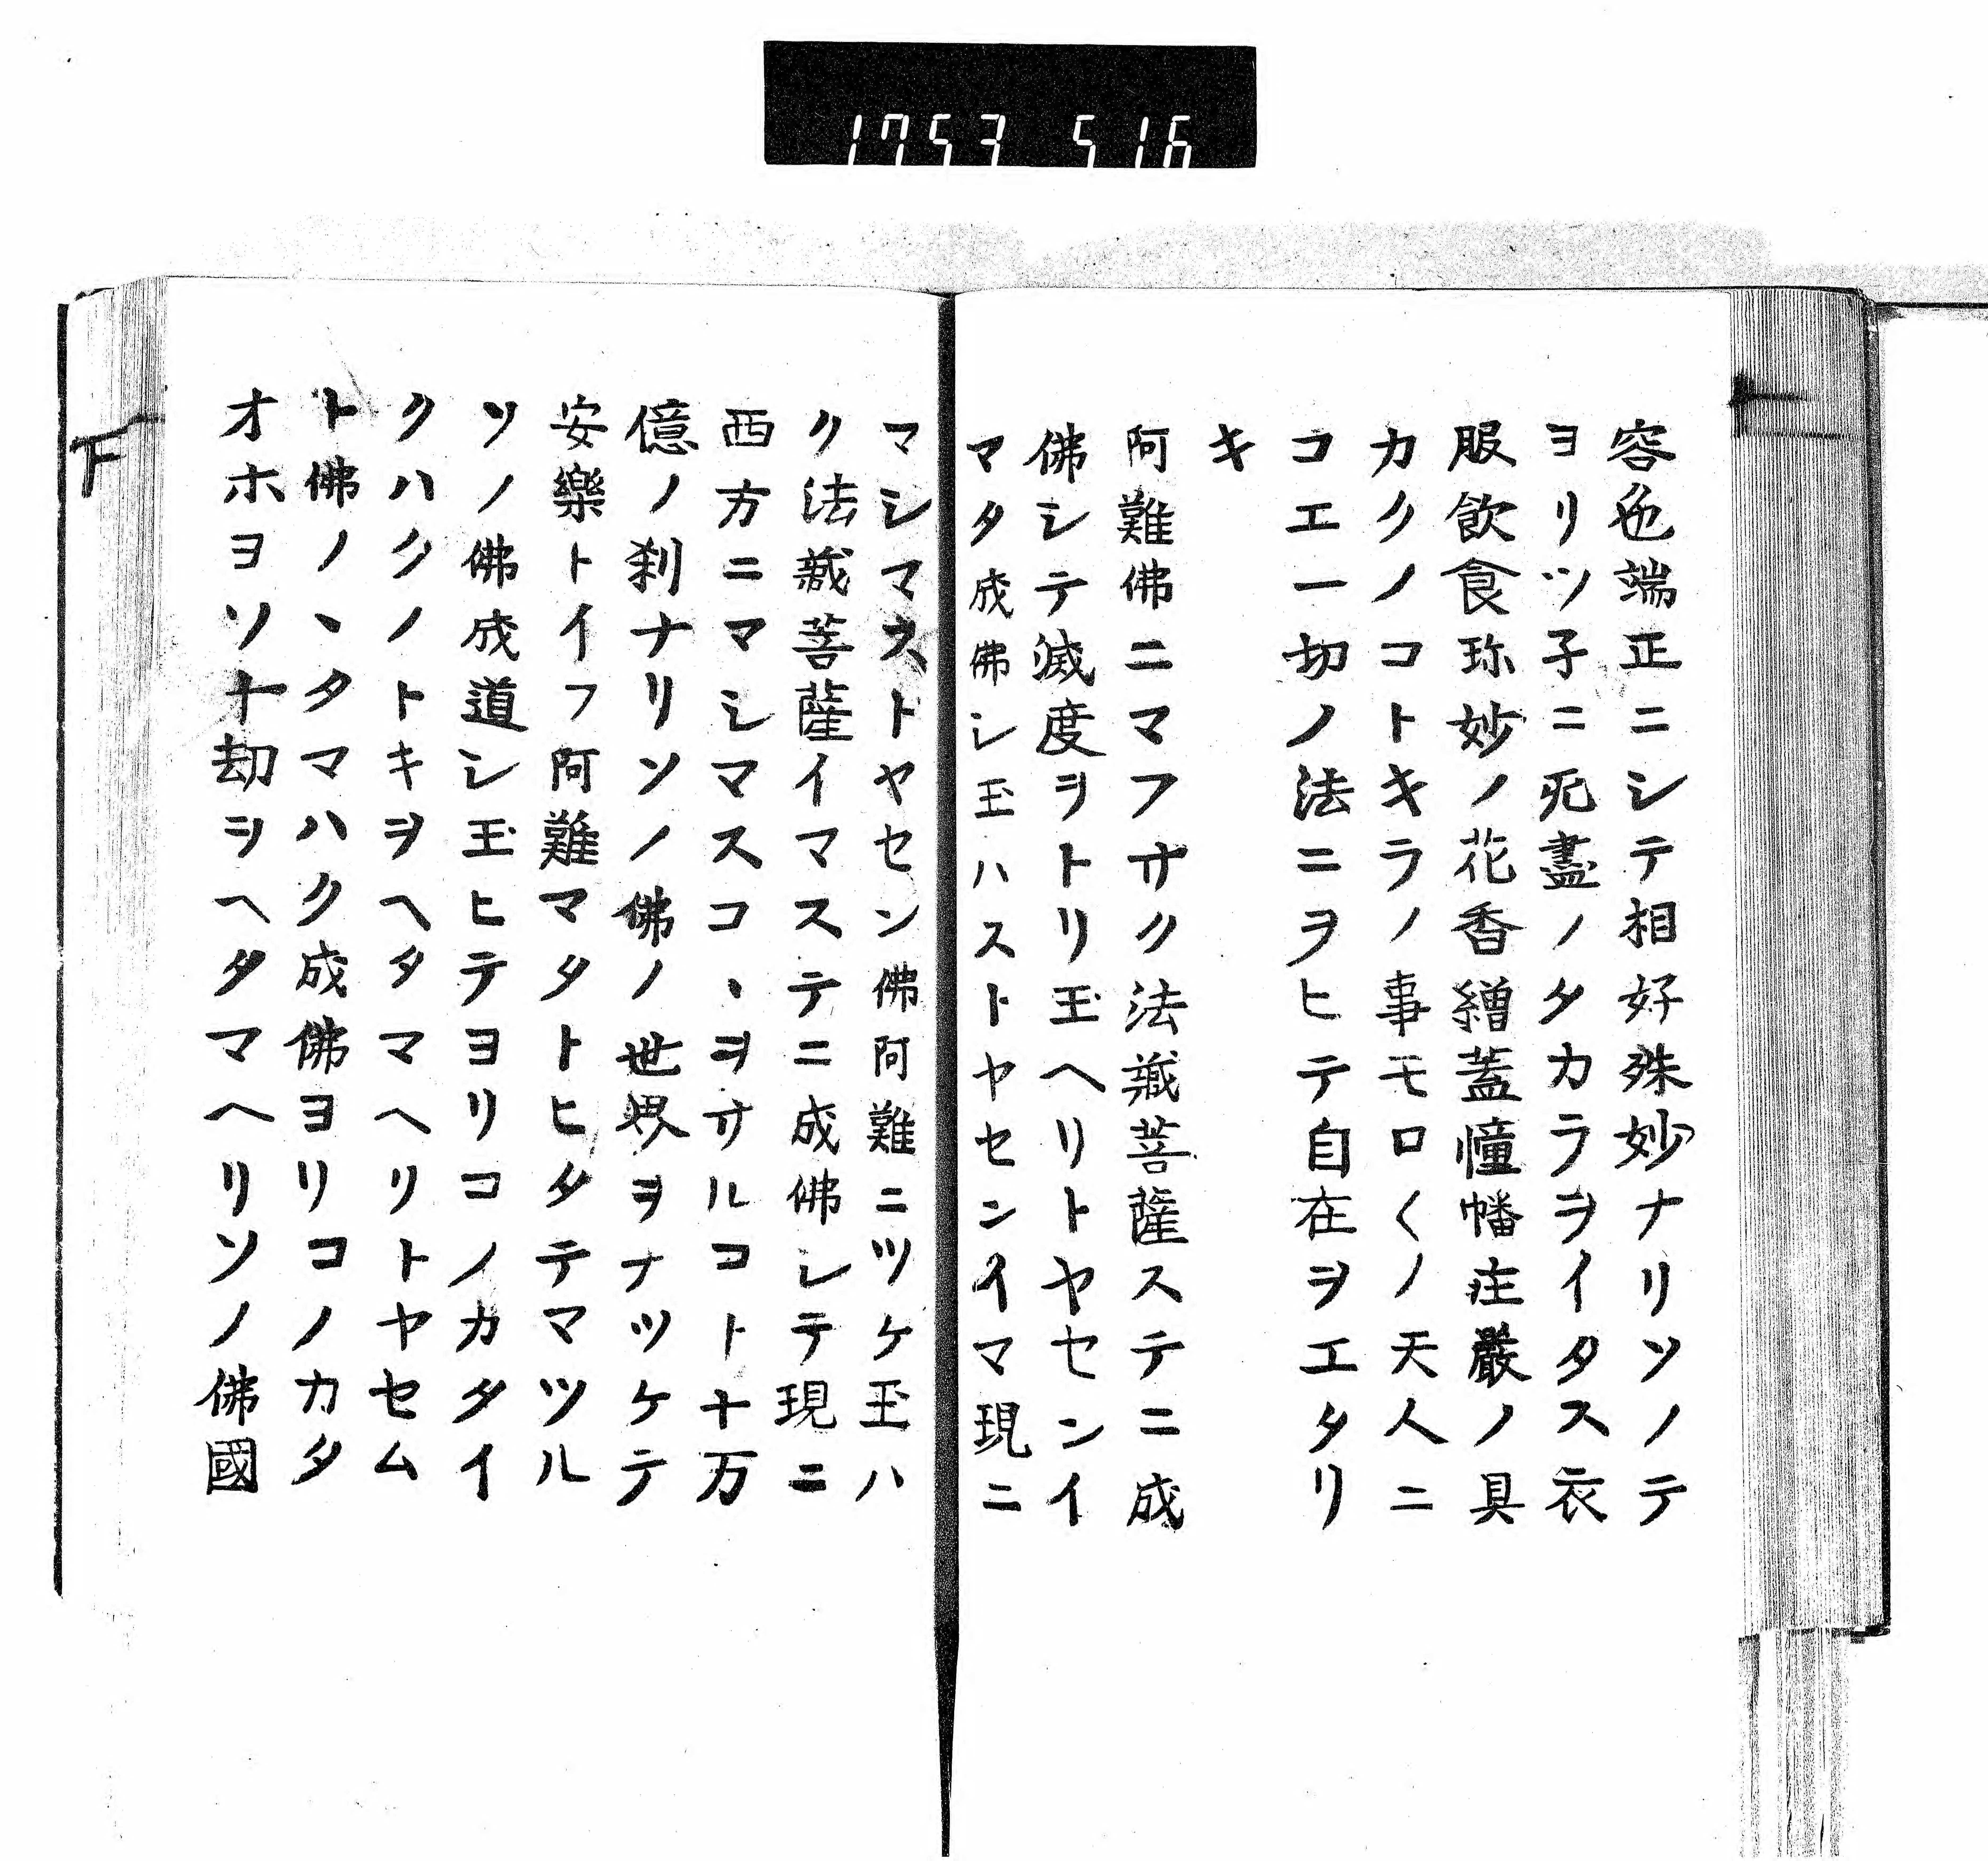 1753 516
容色端正ニシテ相好殊妙ナリソノテ
ヨリツ子ニ死盡ノタカラヲイタス衣
服飲食珎妙ノ花香繒蓋幢幡庄嚴ノ具
カクノコトキラノ事モロ〱ノ天人ニ
コエ一切ノ法ニヲヒテ自在ヲエタリ
キ
阿難佛ニマフサク法藏菩薩ステニ成
佛シテ滅度ヲトリ玉ヘリトヤセンイ
マタ成佛シ玉ハストヤセンイマ現ニ
マシマストヤセン佛阿難ニツケ玉ハ
ク法藏菩薩イマステニ成佛シテ現ニ
西方ニマシマスコヽヲサルコト十万
億ノ刹ナリソノ佛ノ世界ヲナツケテ
安樂トイフ阿難マタトヒタテマツル
ソノ佛成道シ玉ヒテヨリコノカタイ
クハクノトキヲヘタマヘリトヤセム
ト佛ノヽタマハク成佛ヨリコノカタ
オホヨソ十劫ヲヘタマヘリソノ佛國
下